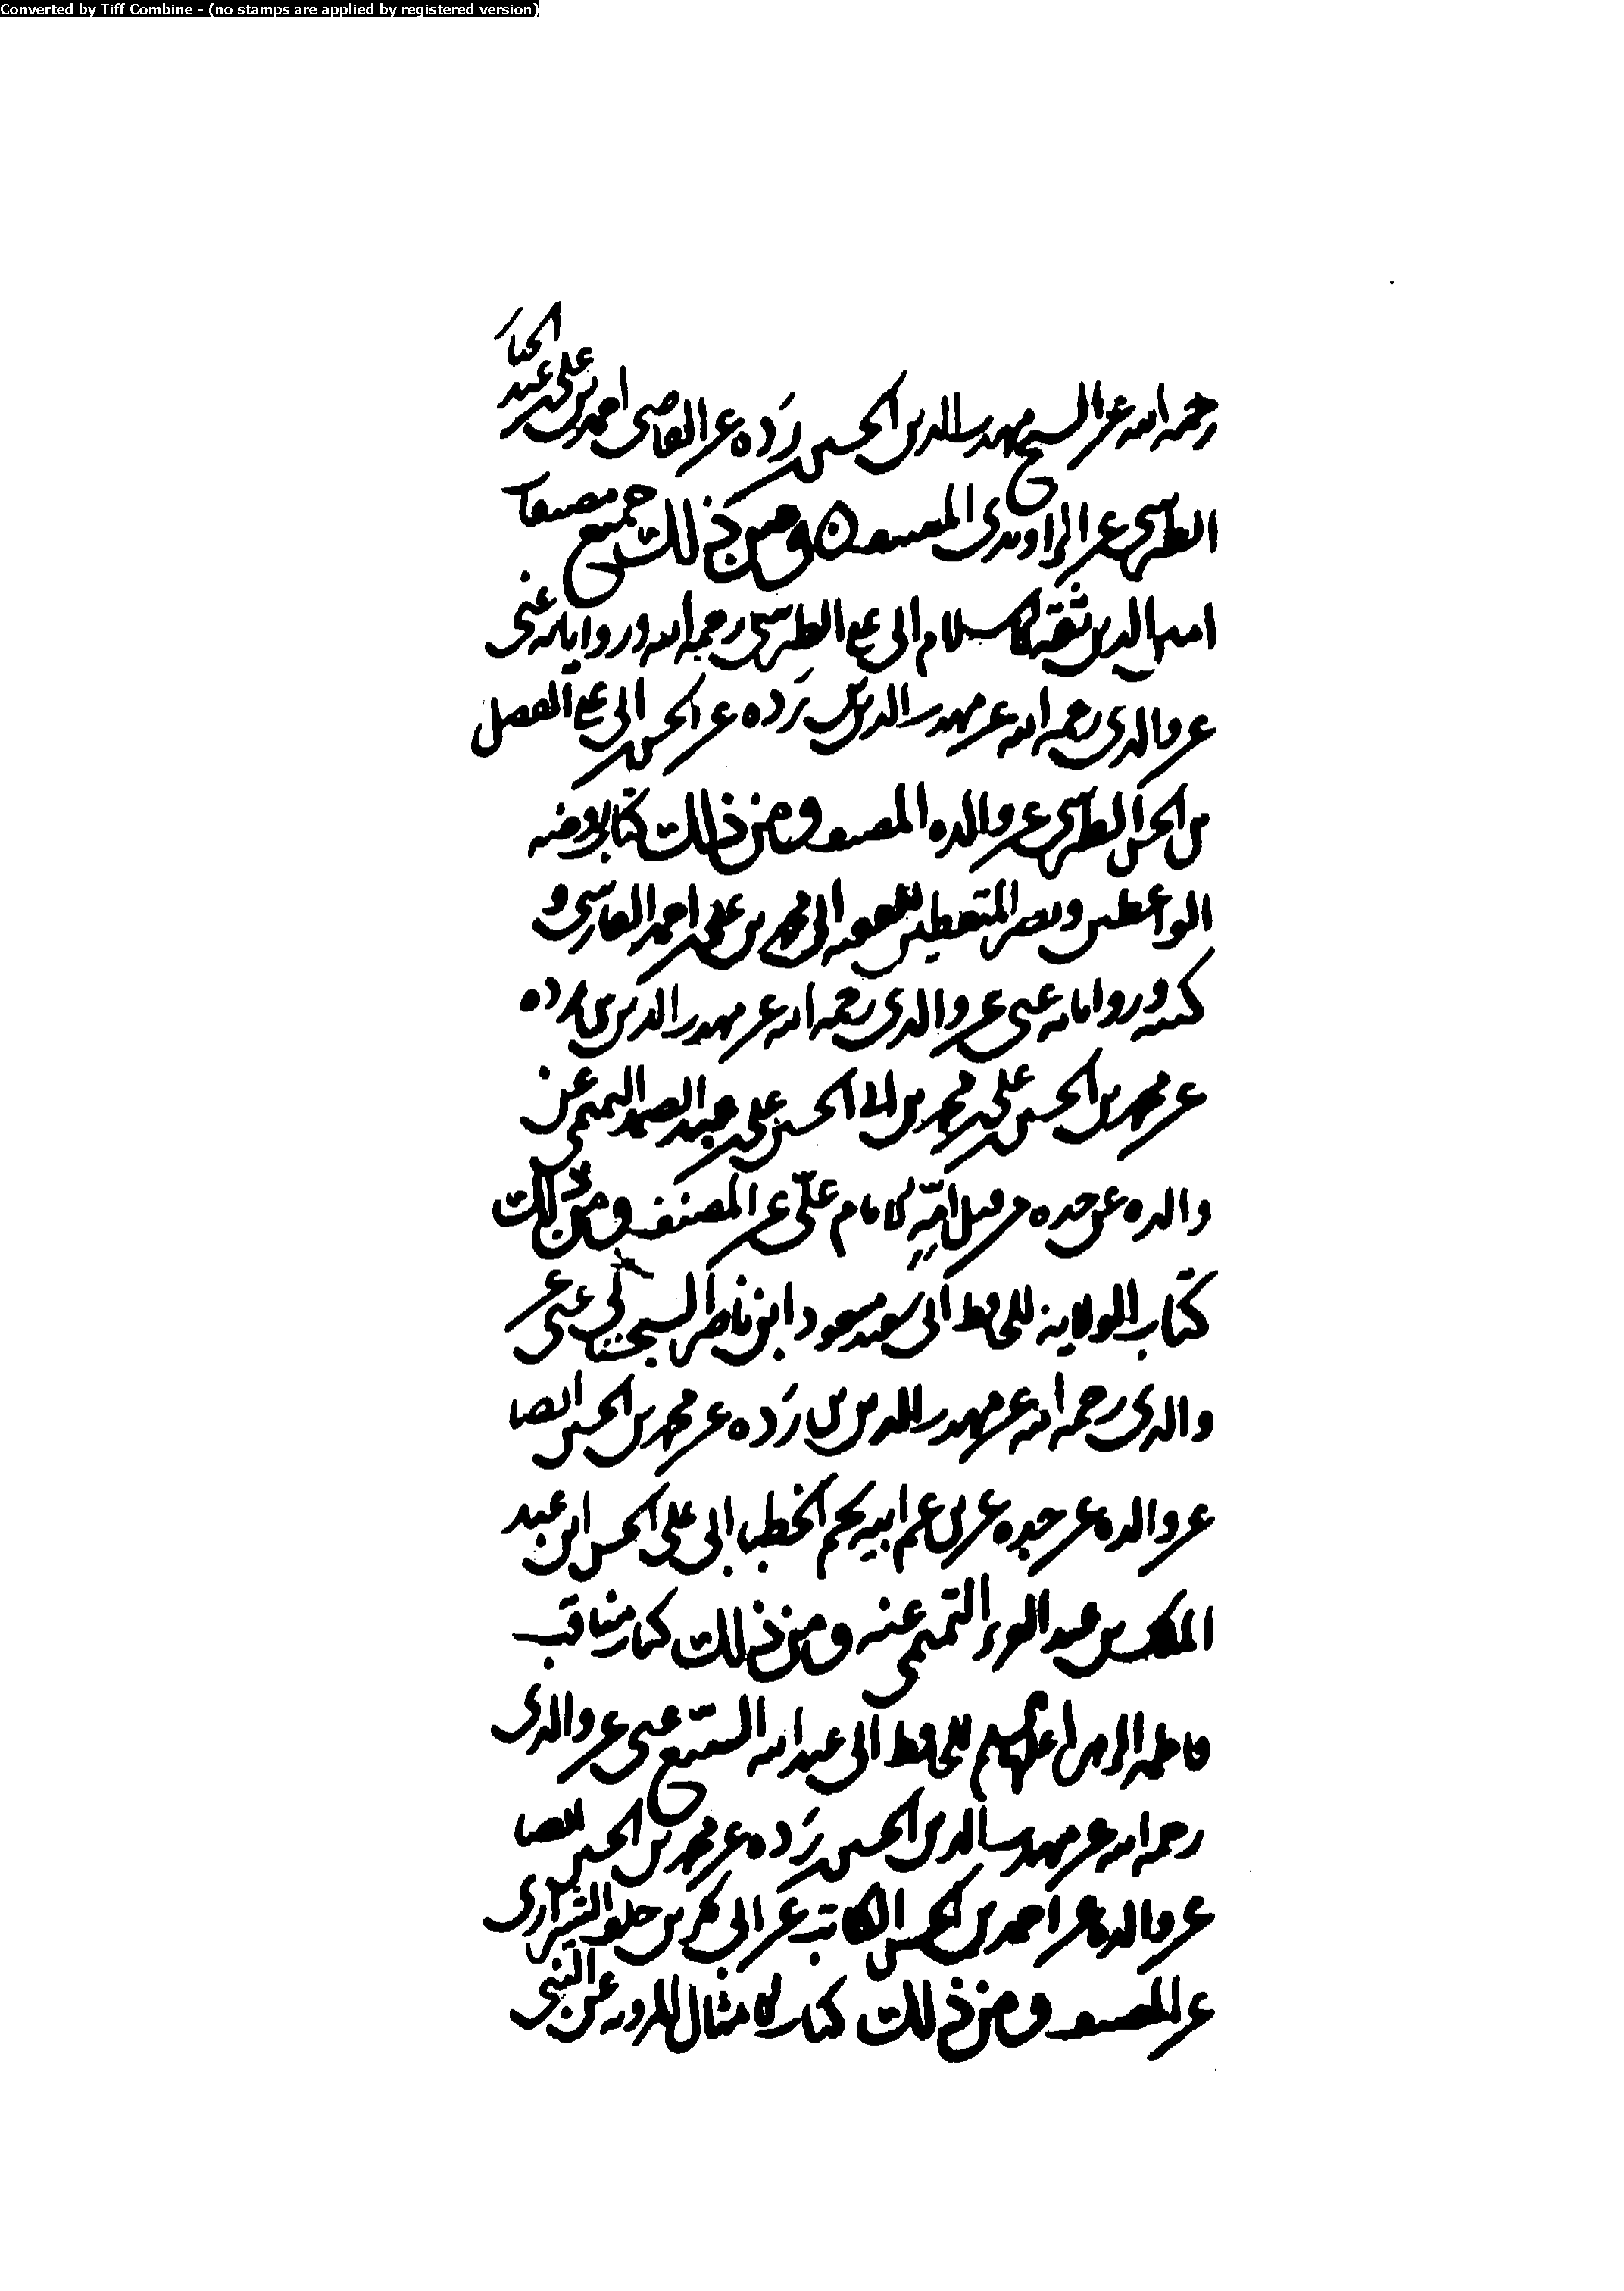 Converted by Tiff Combine - (no stamps are applied by registered version)
الجبار
رحمه الله عن الشيخ مهذب الدين الحسين بن ردة عن القاضي احمد بن علي بن عبد
الطبرسي عن الراوندي المصنف ومن ذلك جميع مصنفات
امين الدين ثقة الاسلام ابي علي الطبرسي رحمه الله ورواياته عني
عن والدي رحمه الله عن مهذب الدين بن ردة عن الحسن بن ابي علي الفضل
بن الحسن الطبرسي عن والده المصنف ومن ذلك كتاب روضة
الواعظين وبصيرة المتعظين للفقيه ابي محمد بن علي بن احمد الفارسي و
كتبه ورواياته عني عن والدي رحمه الله عن مهذب الدين بن ردة
عن محمد بن الحسين بن علي بن محمد بن ابي الحسين بن علي بن عبد الصمد التميمي عن
والده عن جده من قبل امه الامام علي عن المصنف ومن ذلك
كتاب الولاية للحافظ ابي سعيد مسعود ابن ناصر السجستاني عني عن
والدي رحمه الله عن مهذب الدين بن ردة عن محمد بن الحسين ايضا
عن والده عن جده عن ابيه الخطبا ابي علي الحسن ابن عبد
الملك بن عبد العزيز التميمي عنه ومن ذلك كتاب مناقب
فاطمة الزهراء عليها السلم للحافظ ابي عبد الله البيع عني عن والدي
رحمه الله عن مهذب الدين الحسين بن ردة عن محمد بن الحسين ايضا
عن والده عن احمد بن الحسن الكاتب عن ابي بكر بن خلف الشيرازي
عن المصنف ومن ذلك كتاب الامثال المروية عن النبي